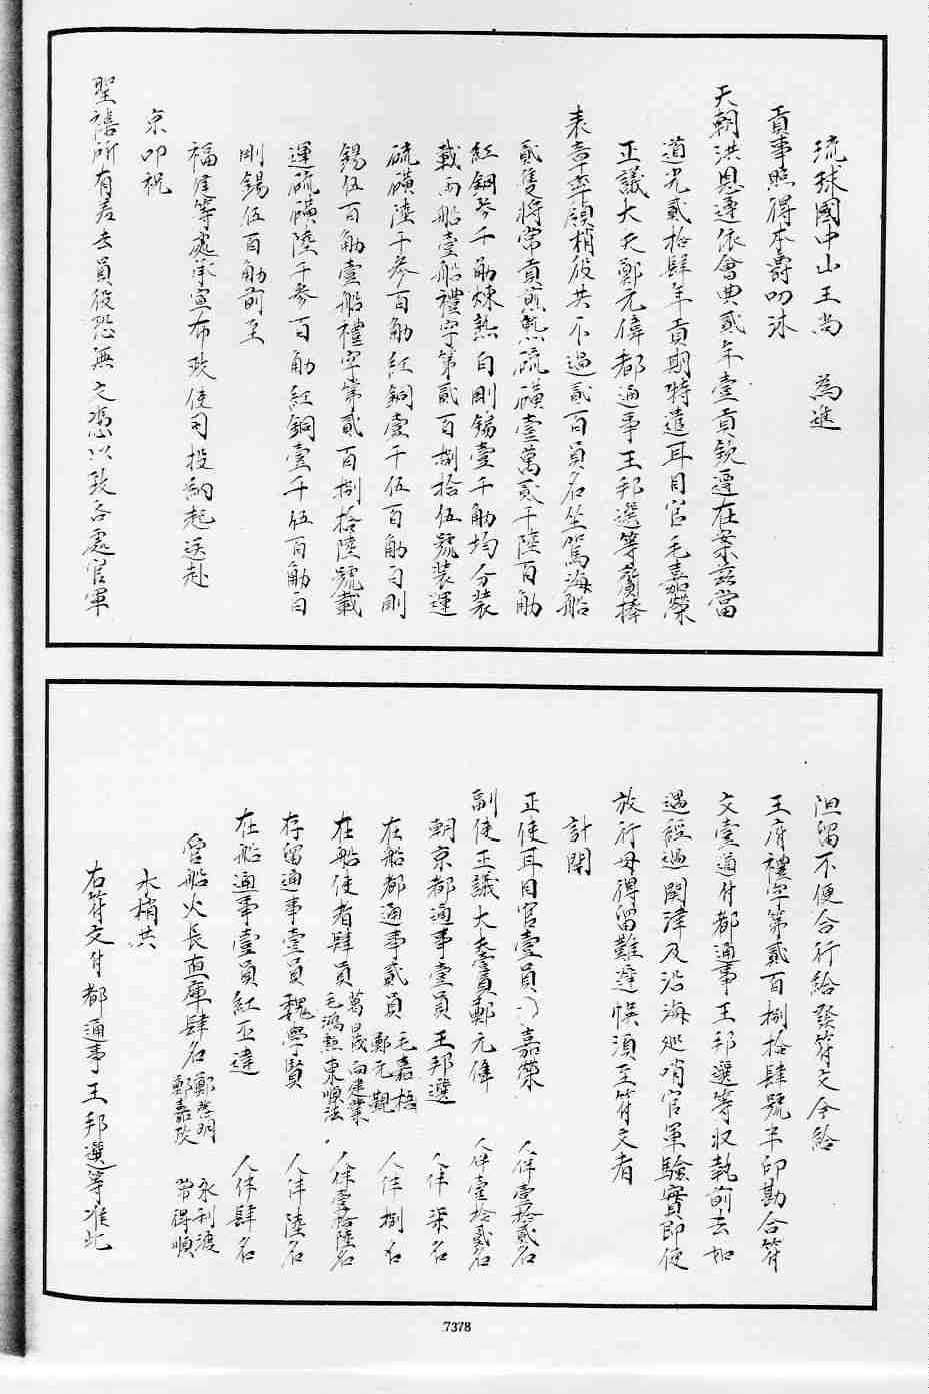 琉球國中山王尚　為進
貢事照得本爵叨沐
天朝洪恩遵依會典貳年壹貢欽遵在案玆當
道光貳拾肆年貢期特遣耳目官毛嘉榮
正議大夫鄭元偉都通事王邦選等齎捧
表章率領梢役共不過貳百員名坐駕海船
貳隻將常貢煎熟硫磺壹萬貳千陸百觔
紅銅參千觔煉熟白剛錫壹千觔均分裝
載兩船壹船禮字第貳百捌拾伍號裝運
硫磺陸千參百觔紅銅壹千伍百觔白剛
錫伍百觔壹船禮字第貳百捌拾陸號載
運硫磺陸千參百觔紅銅壹千伍百觔白
剛錫伍百觔前至
福建等處承宣布政使司投納起送赴
京叩祝
聖禧所有差去員役恐無文憑以致各處官軍
阻留不便合行給發符文今給
王府禮字第貳百捌拾肆號半印勘合符
文壹道付都通事王邦選等收執前去如
遇經過關津及沿海巡哨官軍驗實即便
放行毋得留難遲悞須至符文者
計開
正使耳目官壹員毛嘉榮　人伴壹拾貳名
副使正議大夫壹員鄭元偉　人伴壹拾貳名
朝京都通事壹員王邦選　人伴柒名
在船都通事貳員毛嘉梧 鄭元覲　人伴捌名
在船使者肆員萬晟 向建業 毛鴻勲 東順法　人伴壹拾陸名
存留通事壹員魏學賢　人伴陸名
在船通事壹員紅丕達　人伴肆名
管船火長直庫肆名鄭 明 鄭嘉政 永利渡 得順
水梢共
右符文付都通事王邦選等准此
7378